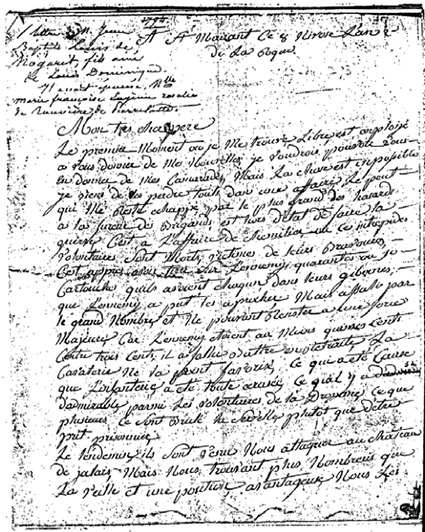 1794
Louis de
Nogaret, fils
Louis Dominique
marie françoise Eugenie rosalie
de
A Mairant Ce 8 Nivose Lan 2
de La
Mon tres cher pere
Le premie Moment ou je Me trouve Libre est employé
a vous donner de Mes Nouvelles, je voudrois pouvoir vous
en donner de Mes Camarades, Mais La chose est impossible
je viens de les perdre touts dans une affaire. Le peut
qui Me Reste échappé par le plus grand des hazards
à la fureur des Brigands est hors d'état de faire la
guerre C'est à L'affaire de Chemillé ou Ces intrépides
volontaires Sont Morts victimes de leurs Bravoures,
C'est après avoir tiré Sur Lennemy quarantes ou
Cartouches quils avoient chaqun dans leurs gibernes,
que Lennemy a put les aprocher Mais assallis par
le grand Nombre, et Ne pouvant Resister a une force
Majeure Car Lennemy étoient au Moins quinses cents
Contre trois Cents, il a fallu Battre en Retraite La
Cavalerie Ne la point favorisé, Ce qui a été Cause
que Linfanterie a été toute écrasée Ce quil y a
dadmirable parmi Les volontaires de la Drome, Ce que
plusieurs Ce Sont Brulé la Cervelle plutot que d'être
prit prisonnier
Le lendemain ils Sont venu Nous attaquer au château
de jalais, Mais Nous trouvant plus Nombreux que
La veille et une position avantageux Nous Les